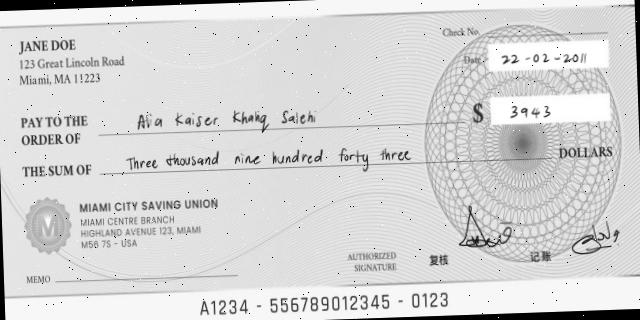 JANE DOE
123 Great Lincoln Road
Miami, MA 11223
Check No.
Date 22-02-2011
PAY TO THE
ORDER OF Ava Kaiser Khaliq Salehi
$ 3943
THE SUM OF Three thousand nine hundred forty three DOLLARS
M
MIAMI CITY SAVING UNION
MIAMI CENTRE BRANCH
HIGHLAND AVENUE 123, MIAMI
M56 7S - USA
MEMO
AUTHORIZED
SIGNATURE
复核
记账
A1234 - 556789012345 - 0123